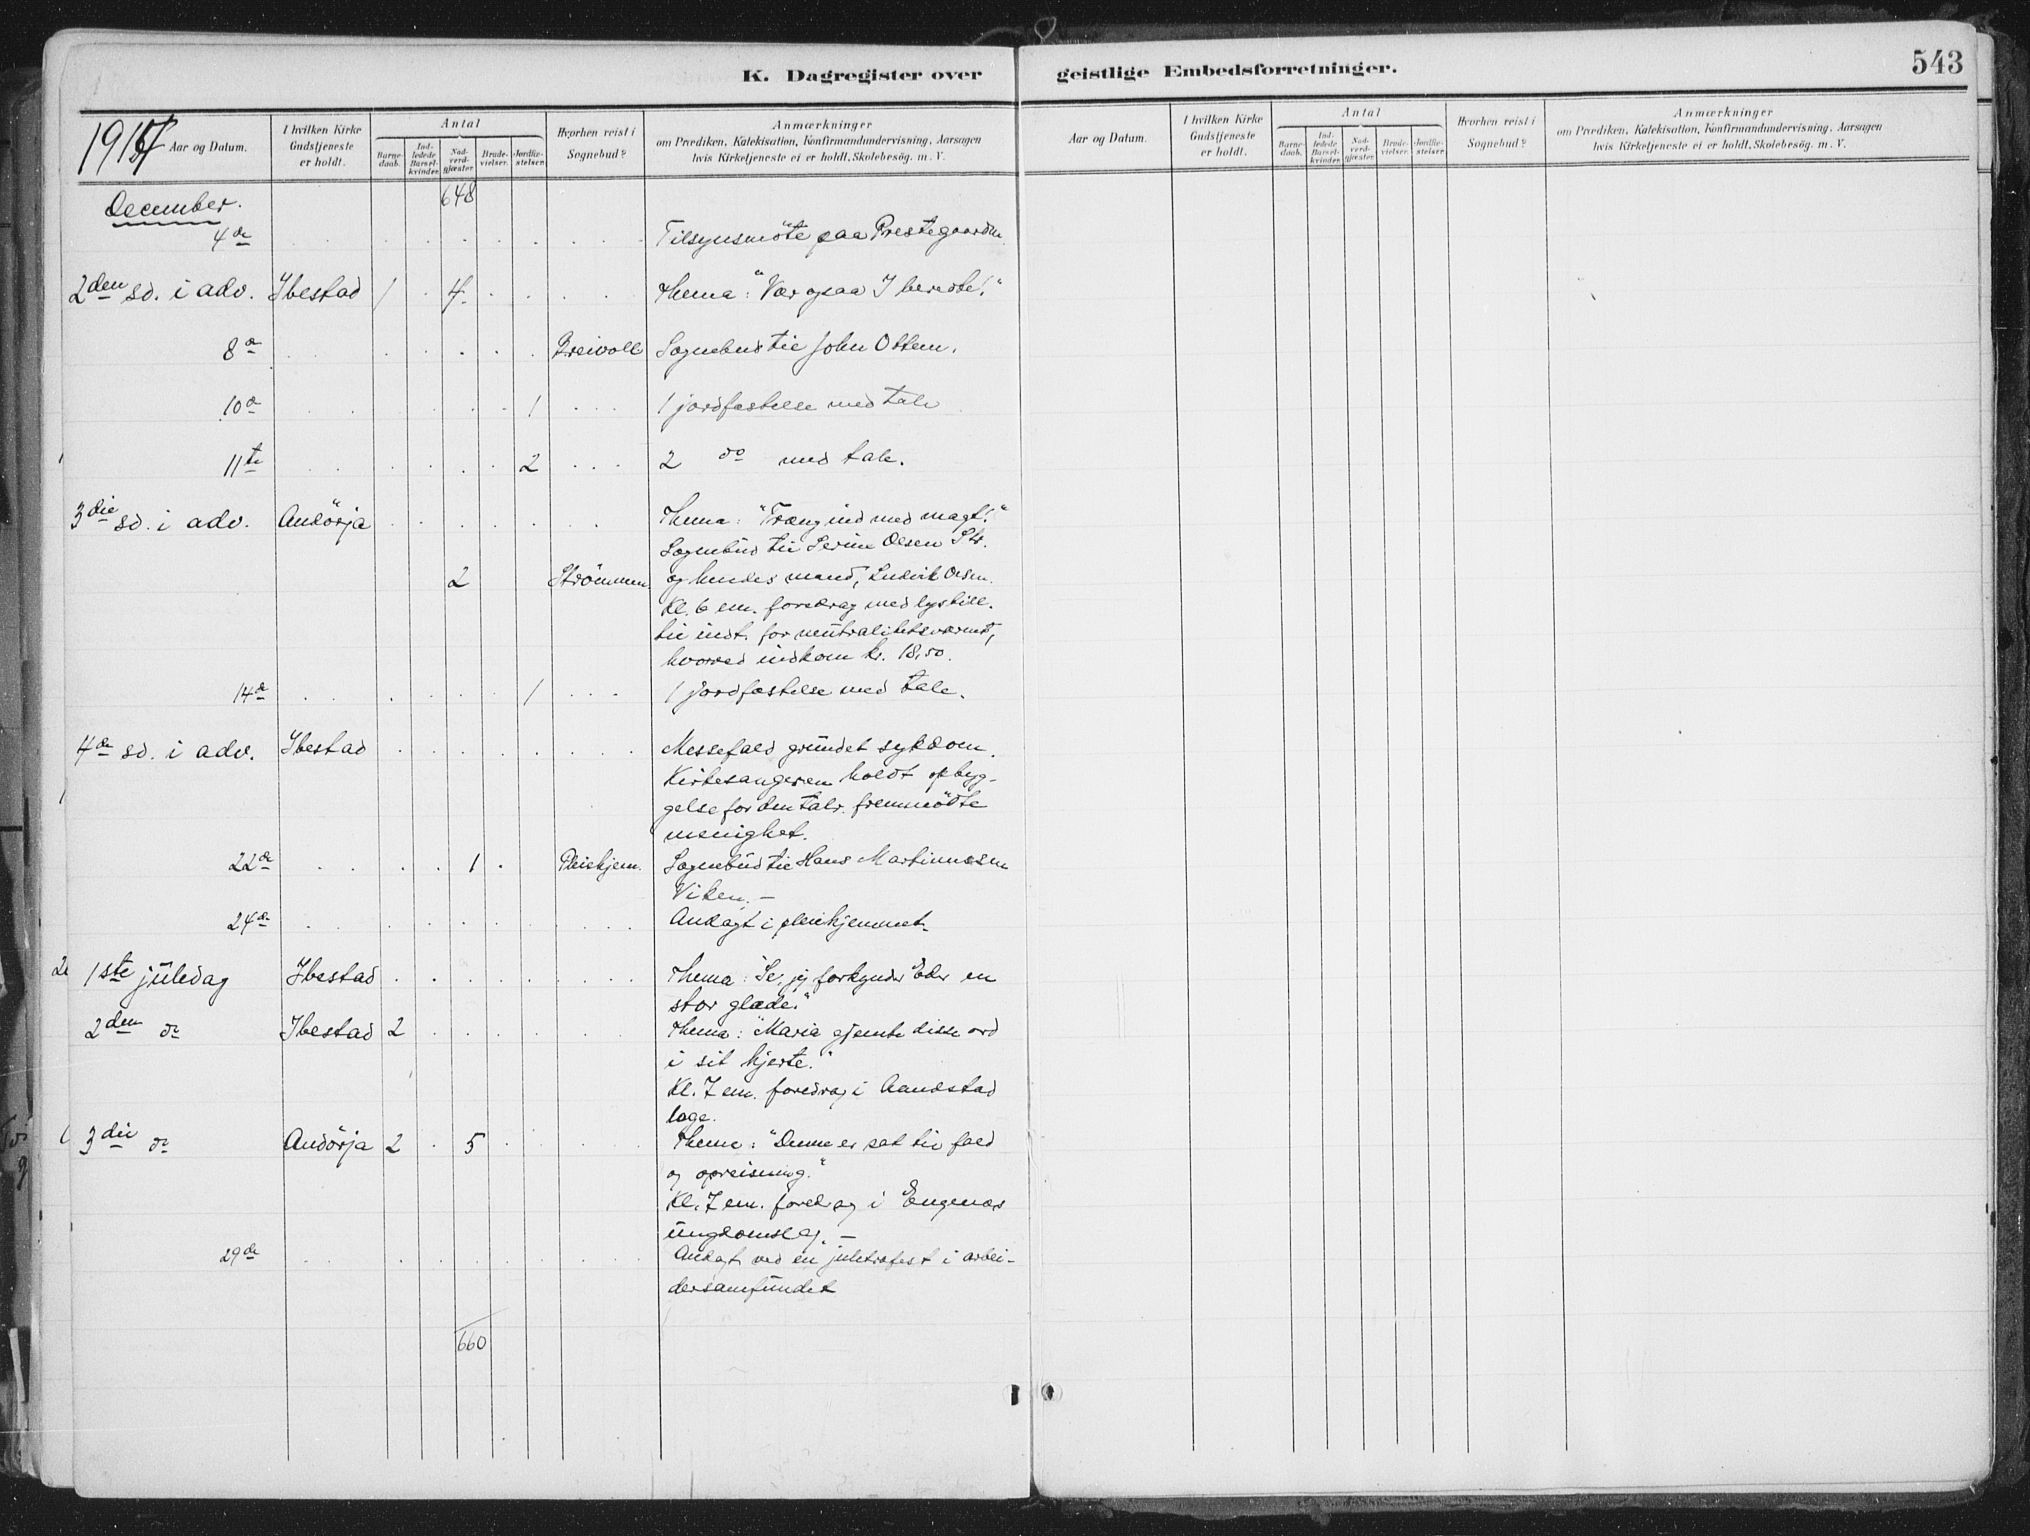 K. Dagregister over geistlige Embedsforretninger.
543
191
Aar og Datum.
I hvilken Kirke Gudstjeneste er holdt.
Antal
Barnedaab.
Indledede Barselkvinder.
Nadverdgjæster.
Brudevielser.
Jordfæstelser.
Hvorhen reist i Sognebud?
Anmærkninger
om Prædiken, Katekisation, Konfirmandundervisning, Aarsagen
hvis Kirketjeneste ei er holdt, Skolebesøg. m. V.
Aar og Datum.
I hvilken Kirke Gudstjeneste er holdt.
Antal
Barnedaab.
Indledede Barselkvinder.
Nadverdgjæster.
Brudevielser.
Jordfæstelser.
Hvorhen reist i Sognebud?
Anmærkninger
om Prædiken, Katekisation, Konfirmandundervisning, Aarsagen
hvis Kirketjeneste ei er holdt, Skolebesøg. m. V.
December. 648
4de Tilsynsmöte paa Prestegaarden
2den sd. i adv. Ibestad 1 4 Thema: "Vær ogsaa I beredte!"
8de Breivoll Sognebud til John Ottem.
10de 1 1 jordfæstelse med tale
11te 2 2 do med tale.
3die sd. i adv. Andörja Thema: "Træng ind med magt!"
Sognebud til Serine Olsen Str.
2 Strömmen og hendes mand, Ludvik Olsen.
Kl. 6 em. foredrag med lysbill.
til indt. for neutralitetsværnet,
hvorved indkom kr. 18,50.
14de 1 1 jordfæstelse med tale.
4de sd. i adv. Ibestad Messefald grundet sykdom.
Kirkesangeren holdt opbyg-
gelse for den talr. fremmödte
menighet.
22de 1 Pleiehjem. Sognebud til Hans Martinussen
Viken. —
24de Andagt i pleiehjemmet
1ste juledag Ibestad Thema: "Se, jeg forkynder Eder en
stor glæde."
2den do Ibestad 2 Thema: "Maria gjemte disse ord
i sit hjerte."
Kl. 7 em. foredrag i Aandstad
lage.
3die do Andörja 2 5 Thema: "Denne er sat til fald
og opreisning."
Kl. 7 em. foredrag i Engenes
ungdomslag. —
29de Andagt ved en juletræfest i arbei-
dersamfundet
660